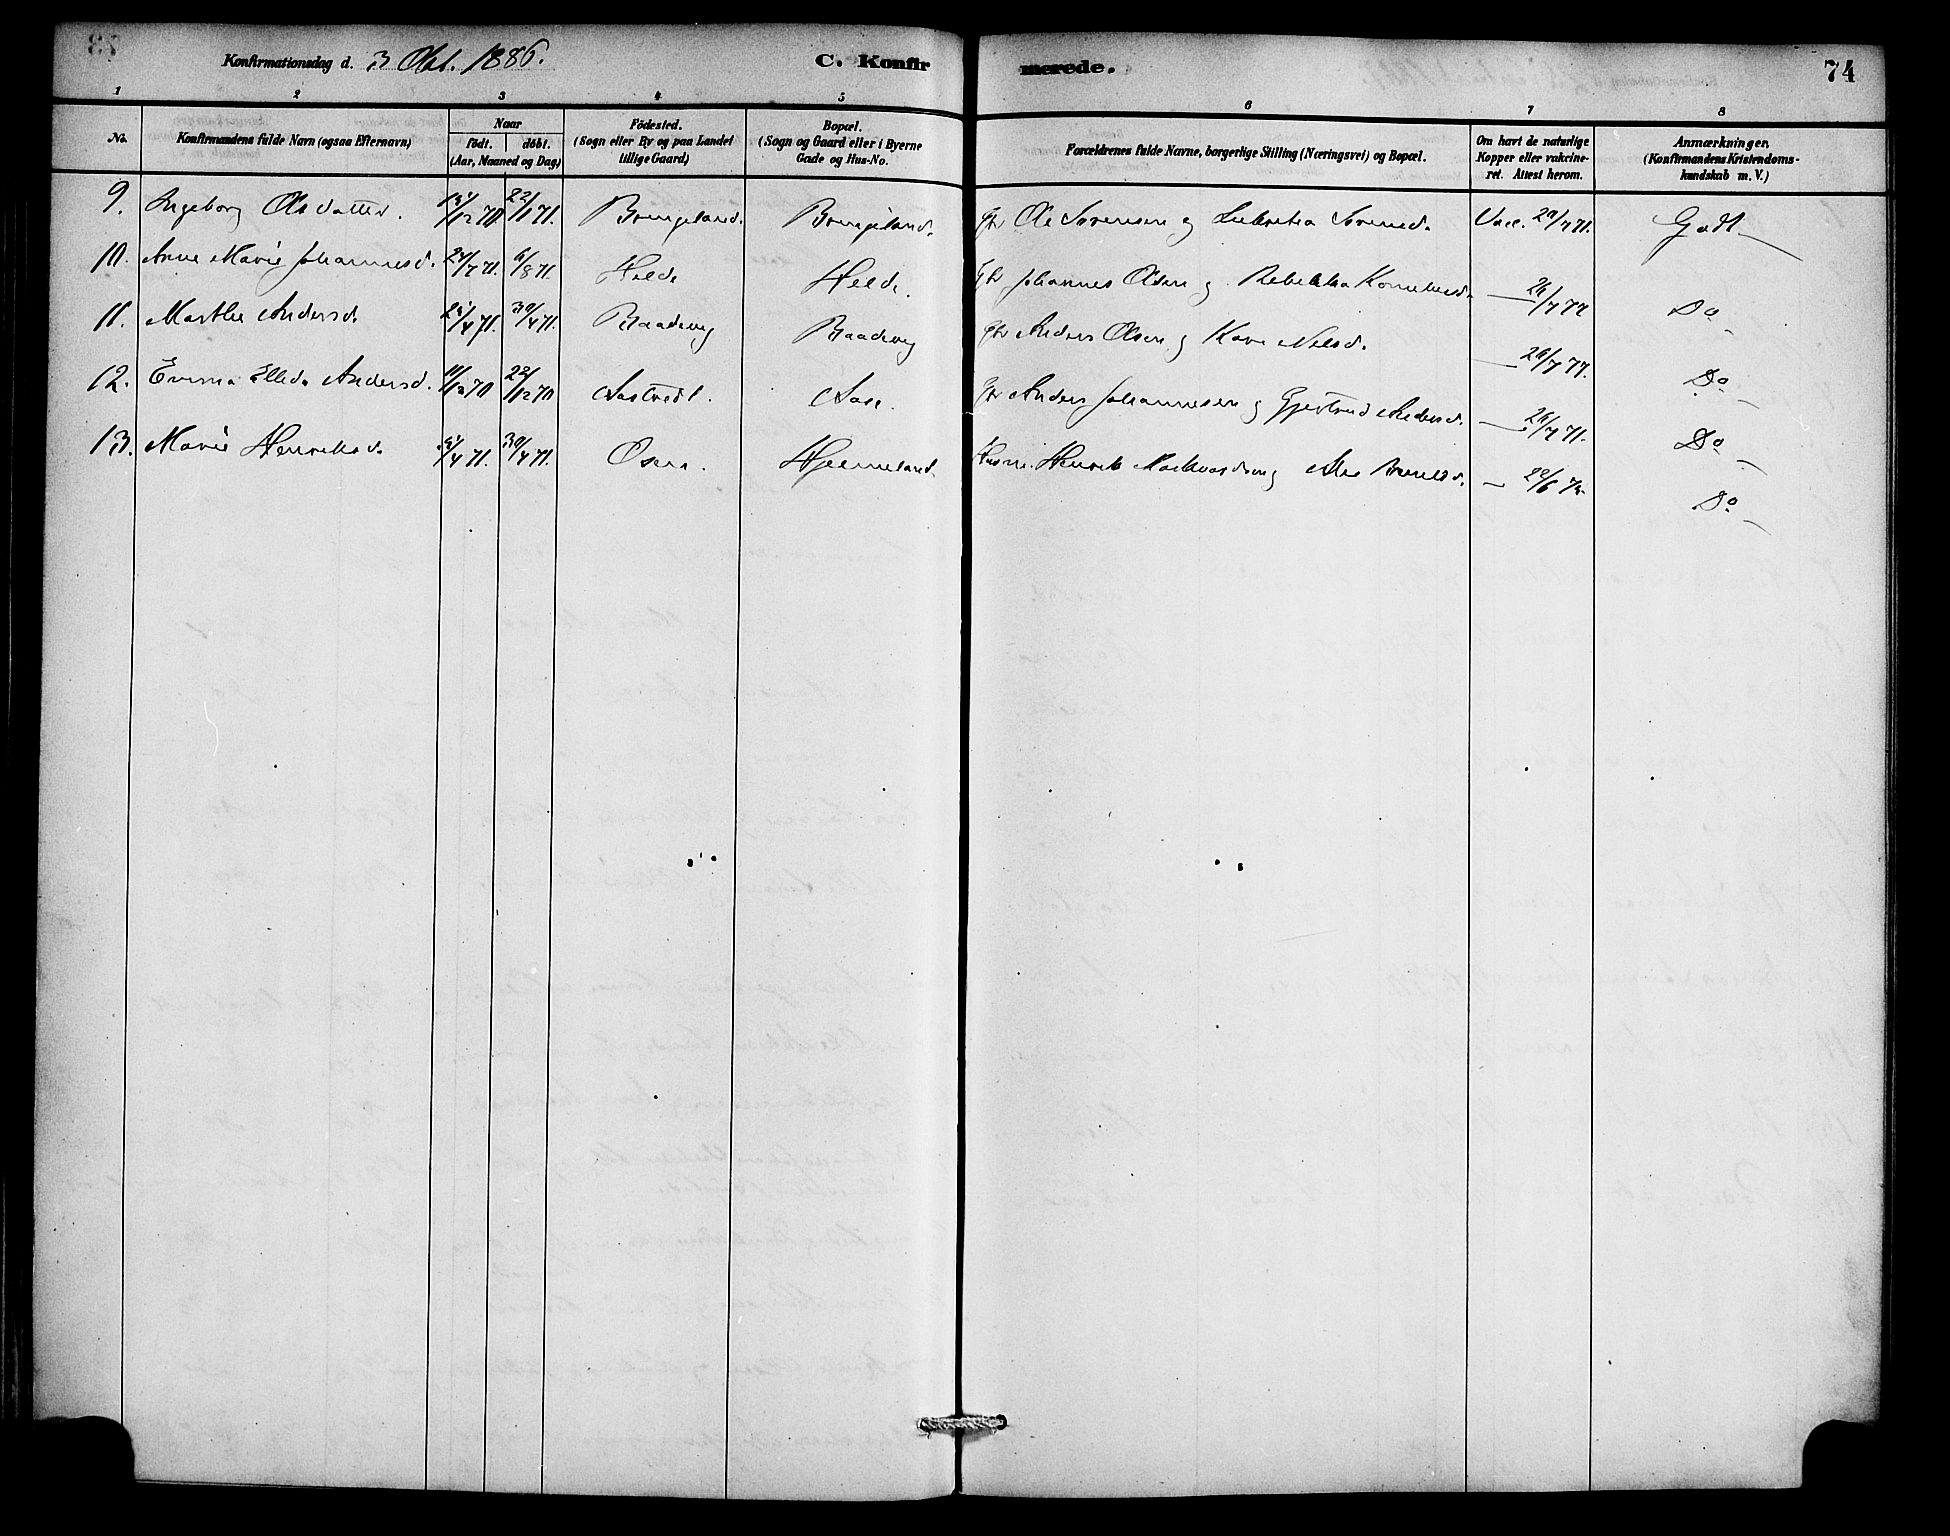 Konfirmationsdag d. 3 Okt. 1886. C. Konfir merede. 74
1 2 3 4 5 6 7 8
No. Konfirmandens fulde Navn (ogsaa Efternavn) Naar födt. döbt. (Aar, Maaned og Dag) Födested. (Sogn eller By og paa Landet tillige Gaard) Bopæl. (Sogn og Gaard eller i Byerne Gade og Hus-No. Forældrenes fulde Navne, borgerlige Stilling (Næringsvei) og Bopæl. Om havt de naturlige Kopper eller vakcineret. Attest herom. Anmærkninger. (Konfirmandens Kristendomskundskab m. V.)
9. Ingeborg Olsdatter. /12 70. 22/1 71. Bringeland. Bringeland. Gbr Ole Sørensen og Sørensd. Vacc. /7 71. Godt
10. Anne Marie Johannesd. 24/7 71. 6/8 71. Helde Helde. Gbr Johannes Olsen og Rebekka Korneliusd. — 26/7 77 Do
11. Marthe Andersd. /4 71. 30/4 71. Gbr Anders Olsen og Kari Nilsd. — 26/7 77. Do
12. Emma Andersd. 11/12 70 22/12 70 Aase Gbr Anders Johannesen og Gjertrud Andersd. — 26/7 71. Do
13. Marie Henriksd. /4 71. 30/4 71. Osen. Hjelmeland. Husm. Henrik og — /6 Do